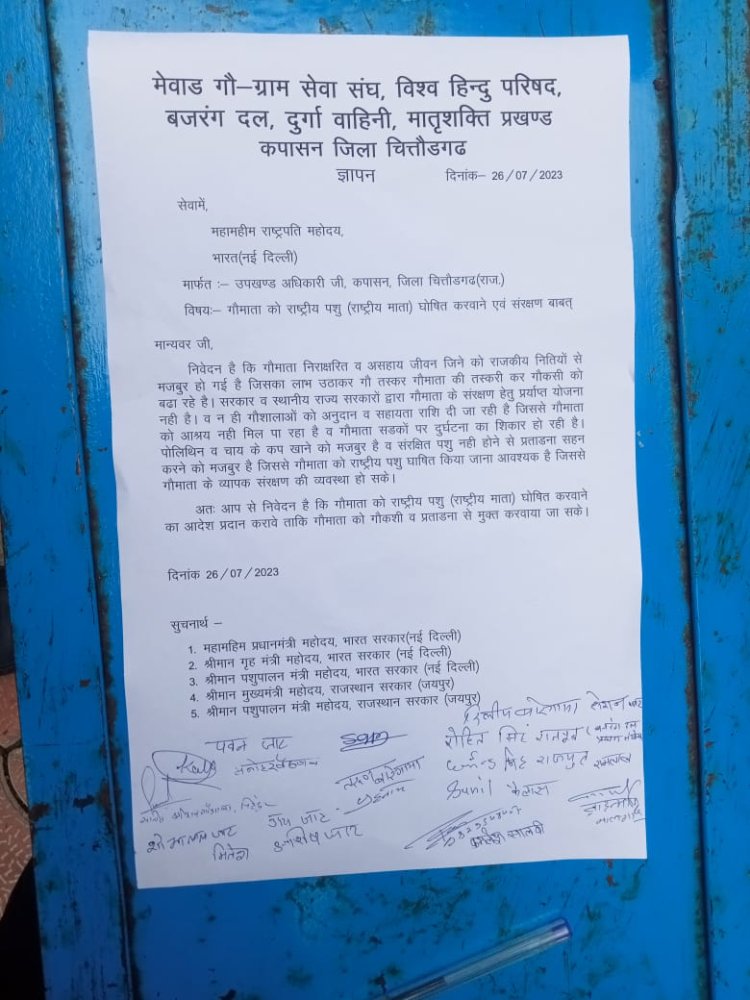 मेवाड गौ–ग्राम सेवा संघ, विश्व हिन्दु परिषद,
बजरंग दल, दुर्गा वाहिनी, मातृशक्ति प्रखण्ड
कपासन जिला चित्तौडगढ
ज्ञापन दिनांक– 26/07/2023
सेवामें,
महामहीम राष्ट्रपति महोदय,
भारत(नई दिल्ली)
मार्फत :– उपखण्ड अधिकारी जी, कपासन, जिला चित्तौडगढ(राज.)
विषय:– गौमाता को राष्ट्रीय पशु (राष्ट्रीय माता) घोषित करवाने एवं संरक्षण बाबत्
मान्यवर जी,
निवेदन है कि गौमाता निराक्षरित व असहाय जीवन जिने को राजकीय नितियों से
मजबुर हो गई है जिसका लाभ उठाकर गौ तस्कर गौमाता की तस्करी कर गौकसी को
बढा रहे है। सरकार व स्थानीय राज्य सरकारों द्वारा गौमाता के संरक्षण हेतु प्रर्याप्त योजना
नही है। व न ही गौशालाओं को अनुदान व सहायता राशि दी जा रही है जिससे गौमाता
को आश्रय नही मिल पा रहा है व गौमाता सडकों पर दुर्घटना का शिकार हो रही है।
पोलिथिन व चाय के कप खाने को मजबुर है व संरक्षित पशु नही होने से प्रताडना सहन
करने को मजबुर है जिससे गौमाता को राष्ट्रीय पशु घाषित किया जाना आवश्यक है जिससे
गौमाता के व्यापक संरक्षण की व्यवस्था हो सके।
अतः आप से निवेदन है कि गौमाता को राष्ट्रीय पशु (राष्ट्रीय माता) घोषित करवाने
का आदेश प्रदान करावे ताकि गौमाता को गौकशी व प्रताडना से मुक्त करवाया जा सके।
दिनांक 26/07/2023
सुचनार्थ –
1. महामहिम प्रधानमंत्री महोदय, भारत सरकार(नई दिल्ली)
2. श्रीमान गृह मंत्री महोदय, भारत सरकार (नई दिल्ली)
3. श्रीमान पशुपालन मंत्री महोदय, भारत सरकार (नई दिल्ली)
4. श्रीमान मुख्यमंत्री महोदय, राजस्थान सरकार (जयपुर)
5. श्रीमान पशुपालन मंत्री महोदय, राजस्थान सरकार (जयपुर)
पवन जाट
रोहित सिंह राजपूत
सिंह राजपुत
Sunil
जाट
मितेश